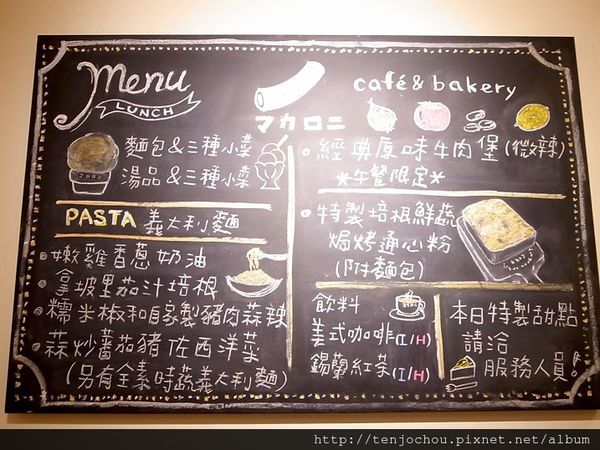 menu
LUNCH
café & bakery
マカロニ
麵包&三種小菜
湯品&三種小菜
PASTA 義大利麵
嫩雞香蔥奶油
拿坡里茄汁培根
糯米椒和自家製豬肉蒜辣
蒜炒蕃茄豬佐西洋菜
(另有全素時蔬義大利麵)
經典原味牛肉堡(微辣)
*午餐限定*
特製培根鮮蔬
焗烤通心粉
(附麵包)
飲料
美式咖啡(I/H)
錫蘭紅茶(I/H)
本日特製甜點
請洽
服務人員!
http://tenjochou.pixnet.net/album